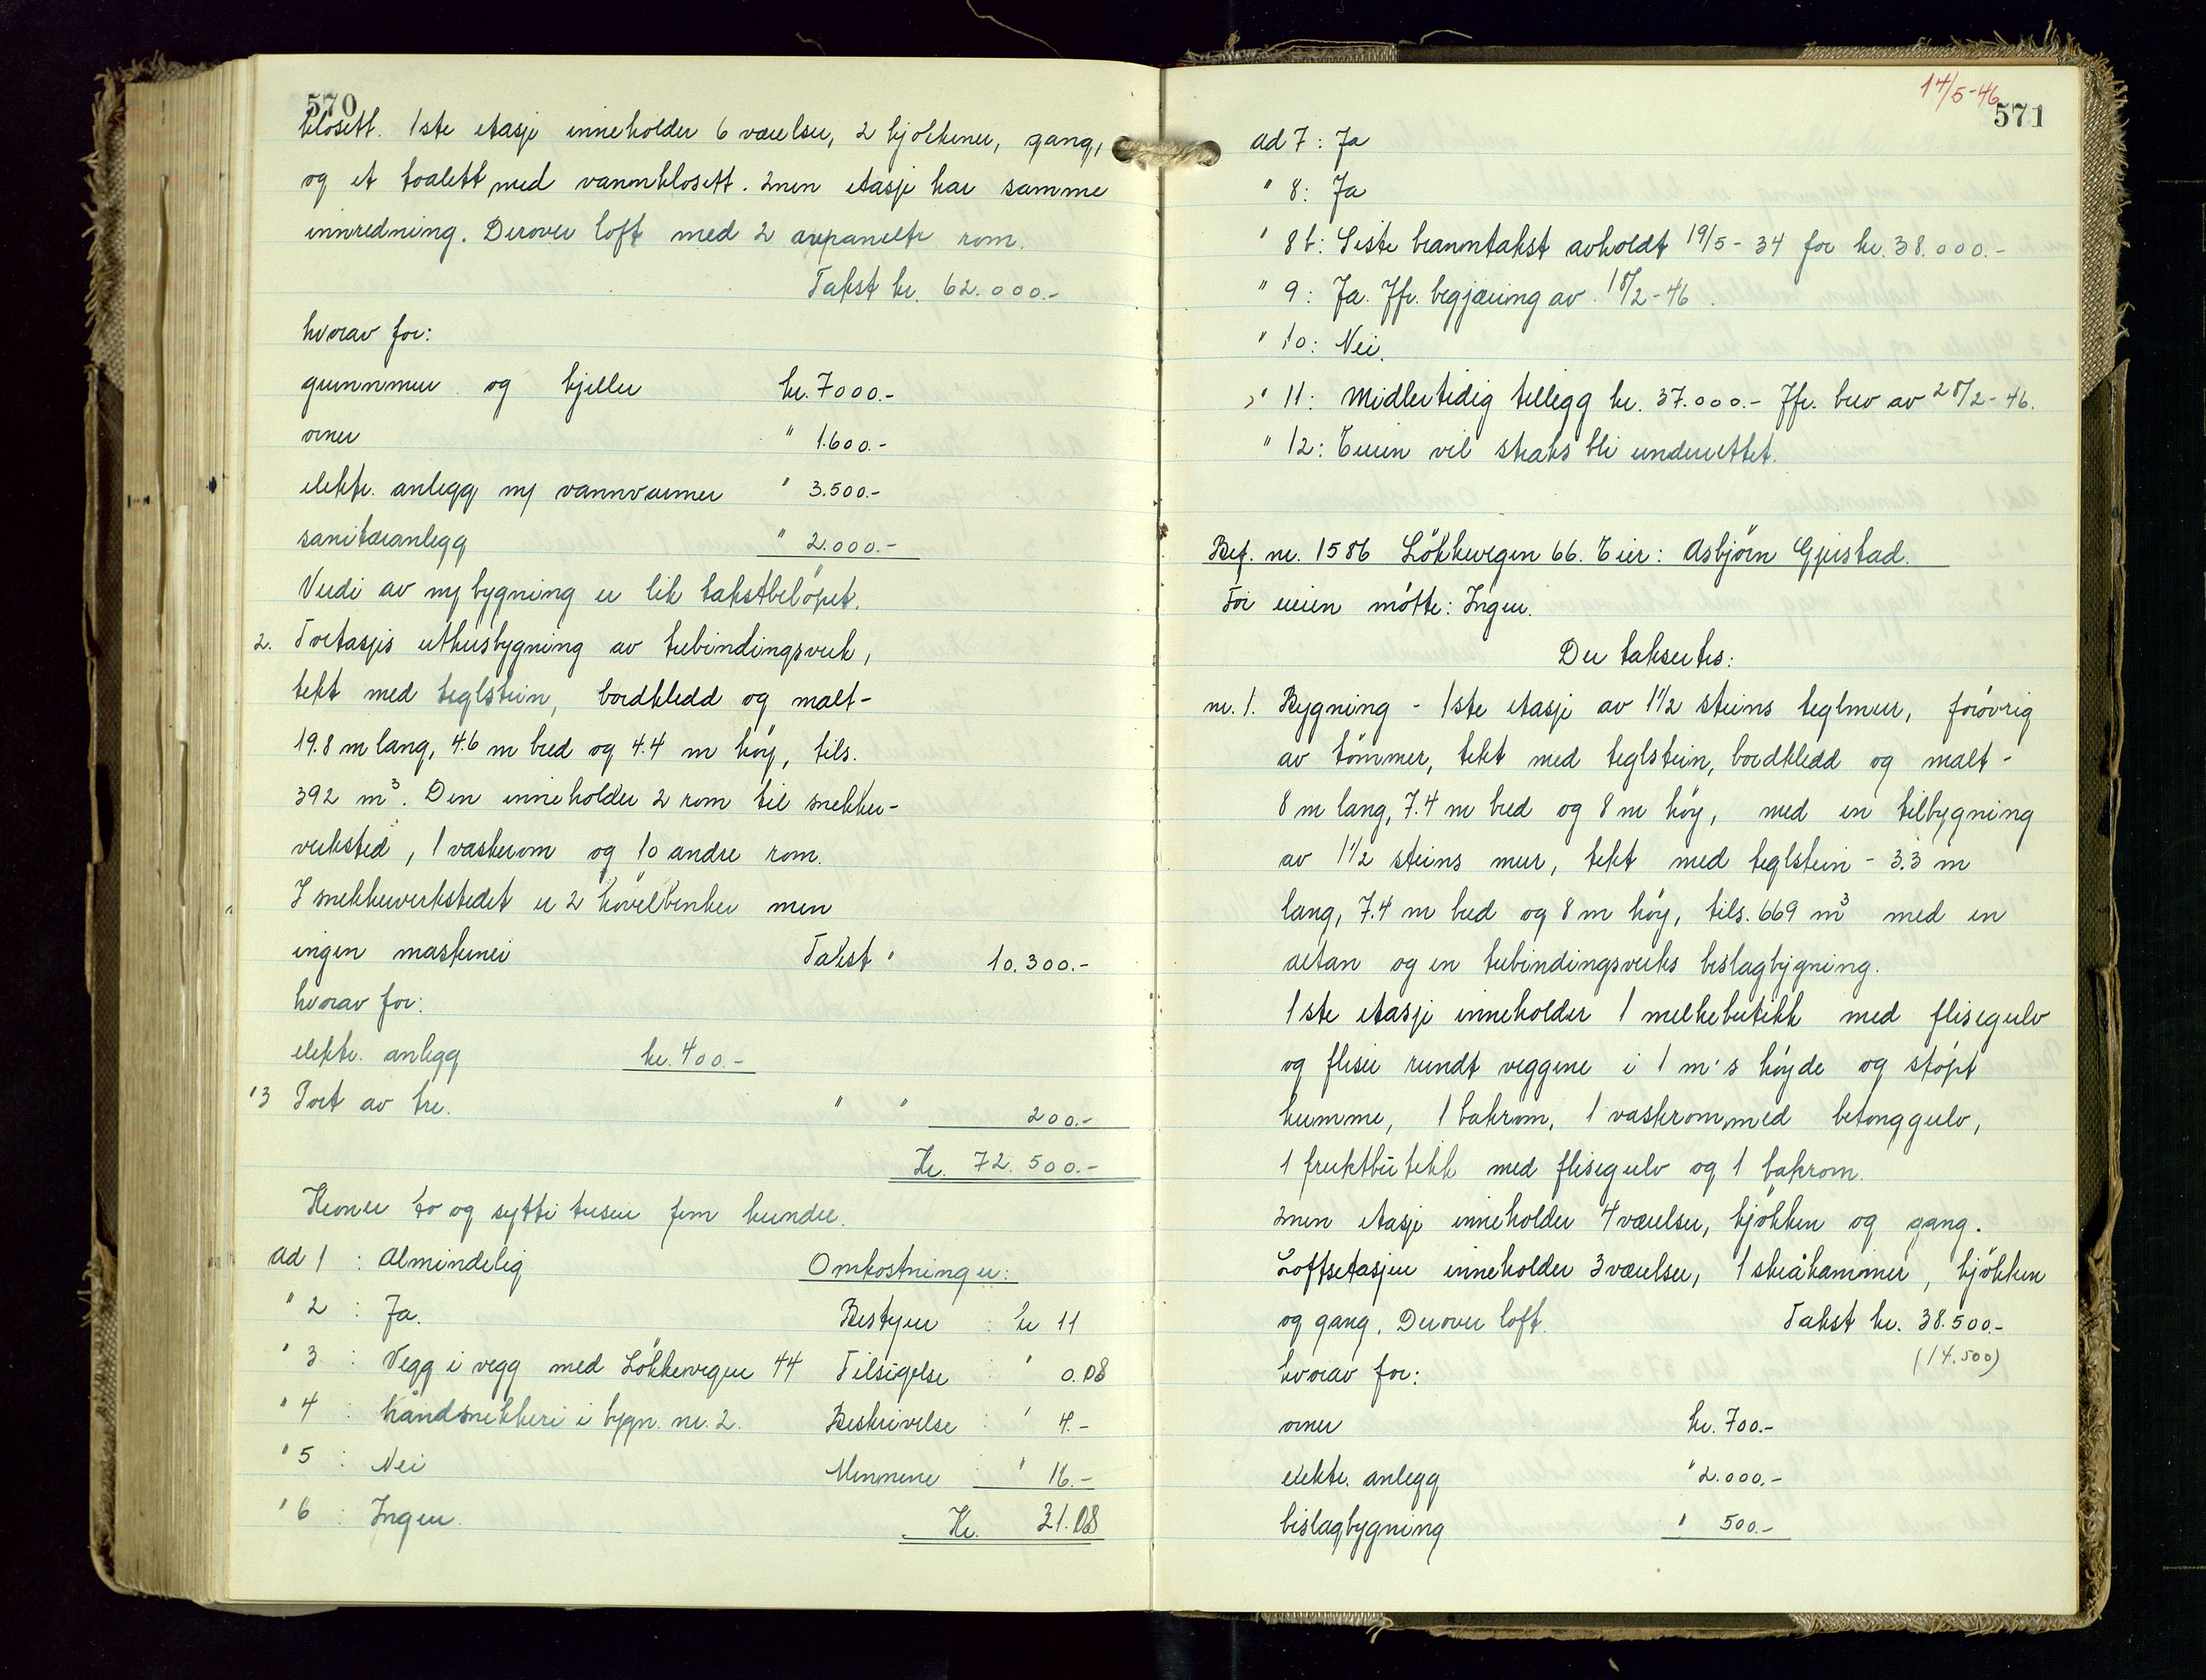 570
klosett. 1ste etasje inneholder 6 værelser, 2 kjökkener, gang,
og et toalett med vannklosett. 2nen etasje har samme
innredning. Derover loft med 2 avpanelte rom.
Takst kr. 62.000.-
hvorav for:
grunnmur og kjeller kr. 7000.-
ovner " 1.600.-
elektr. anlegg m/ vannvarmer " 3.500.-
sanitæranlegg " 2.000.-
Verdi av ny bygning er lik takstbelöpet.
2. Toetasjes uthusbygning av utbindingsverk,
tekt med teglstein, bordkledd og malt-
19.8 m lang, 4.6 m bred og 4.4 m höy, tils.
392 m³. Den inneholder 2 rom til snekker-
verksted, 1 vaskerom og 10 andre rom.
I snekkerverkstedet er 2 hövelbenker men
ingen maskiner Takst " 10.300.-
hvorav for:
elektr. anlegg kr. 400.-
" 3 Port av tre. " " 200.-
Kr. 72.500.-
Kroner to og sytti tusen fem hundre.
ad 1 : Almindelig Omkostninger:
" 2 : Ja. Bestyrer : kr 11
" 3 : Vegg i vegg med Lökkevegen 44 Tilsigelse " 0.08
" 4 : Håndsnekkeri i bygn. nr. 2. Beskrivelse : " 4.-
" 5 : Nei Mennene " 16.-
" 6 : Ingen. Kr. 31.08
14/5-46
571
ad 7 : Ja
" 8 : Ja
" 8 b : Siste branntakst avholdt 19/5 - 34 for kr. 38.000.-
" 9 : Ja. Jfr. begjæring av 18/2-46.
" 10 : Nei.
" 11 : Midlertidig tillegg kr. 37.000.- Jfr. brev av 28/2-46.
" 12 : Eieren vil straks bli underrettet.
Bef. nr. 1586 Lökkevegen 66. Eier: Asbjörn Gjerstad.
For eieren mötte: Ingen.
Der takseertes:
nr. 1. Bygning - 1ste etasje av 1 1/2 steins teglmur, forövrig
av tömmer, tekt med teglstein, bordkledd og malt -
8 m lang, 7.4 m bred og 8 m höy, med en tilbygning
av 1 1/2 steins mur, tekt med teglstein - 3.3 m
lang, 7.4 m bred og 8 m höy, tils. 669 m³ med en
altan og en utbindingsverks bislagbygning.
1ste etasje inneholder 1 melkebutikk med flisegulv
og fliser rundt veggene i 1 m's höyde og stöpt
kumme, 1 bakrom, 1 vaskerom med betonggulv,
1 fruktbutikk med flisegulv og 1 bakrom.
2nen etasje inneholder 4 værelser, kjökken og gang.
Loftsetasjen inneholder 3 værelser, 1 skråkammer, kjökken
og gang. Derover loft. Takst kr. 38.500.-
(14.500)
hvorav for:
ovner kr. 700.-
elektr. anlegg " 2.000.-
bislagbygning " 500.-